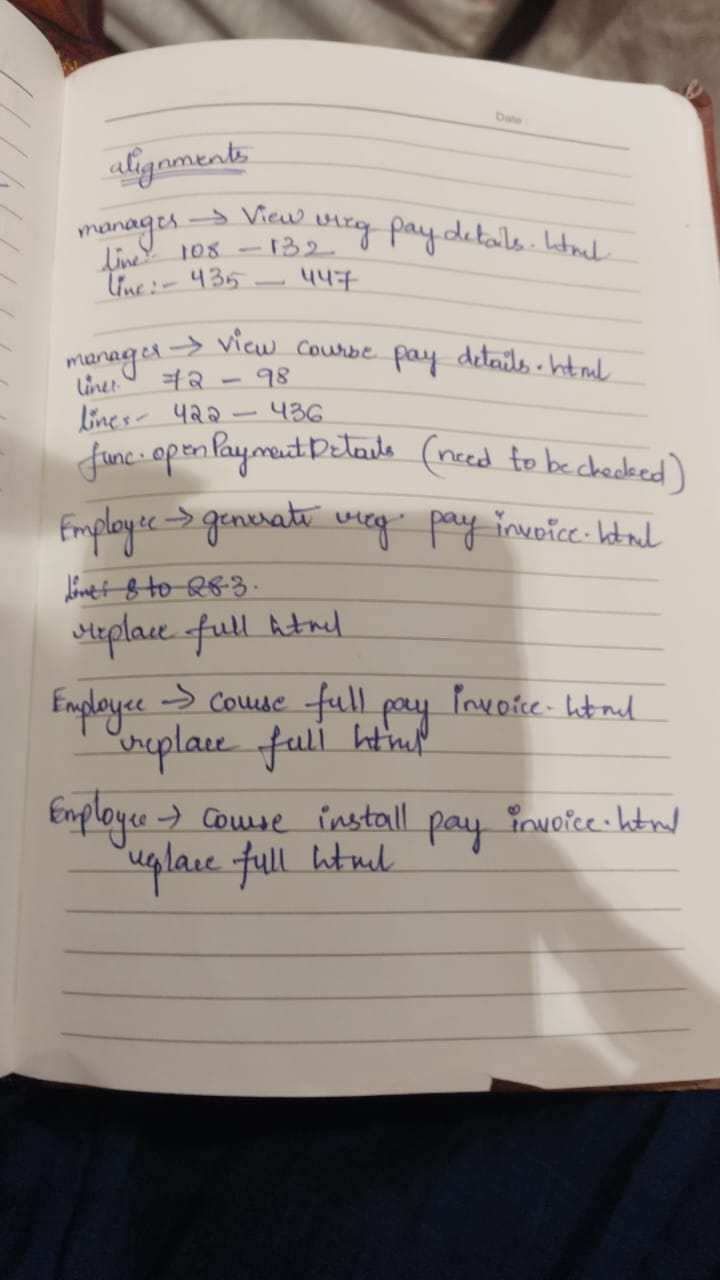 Date :
alignments
manager → View vreg pay details.html
line:- 108 - 132
line:- 435 - 447
manager → view course pay details.html
lines 72 - 98
lines- 422 - 436
func. openPaymentDetails (need to be checked)
Employee → generate vreg. pay invoice.html
lines 8 to 283.
replace full html
Employee → course full pay invoice.html
replace full html
Employee → course install pay invoice.html
replace full html